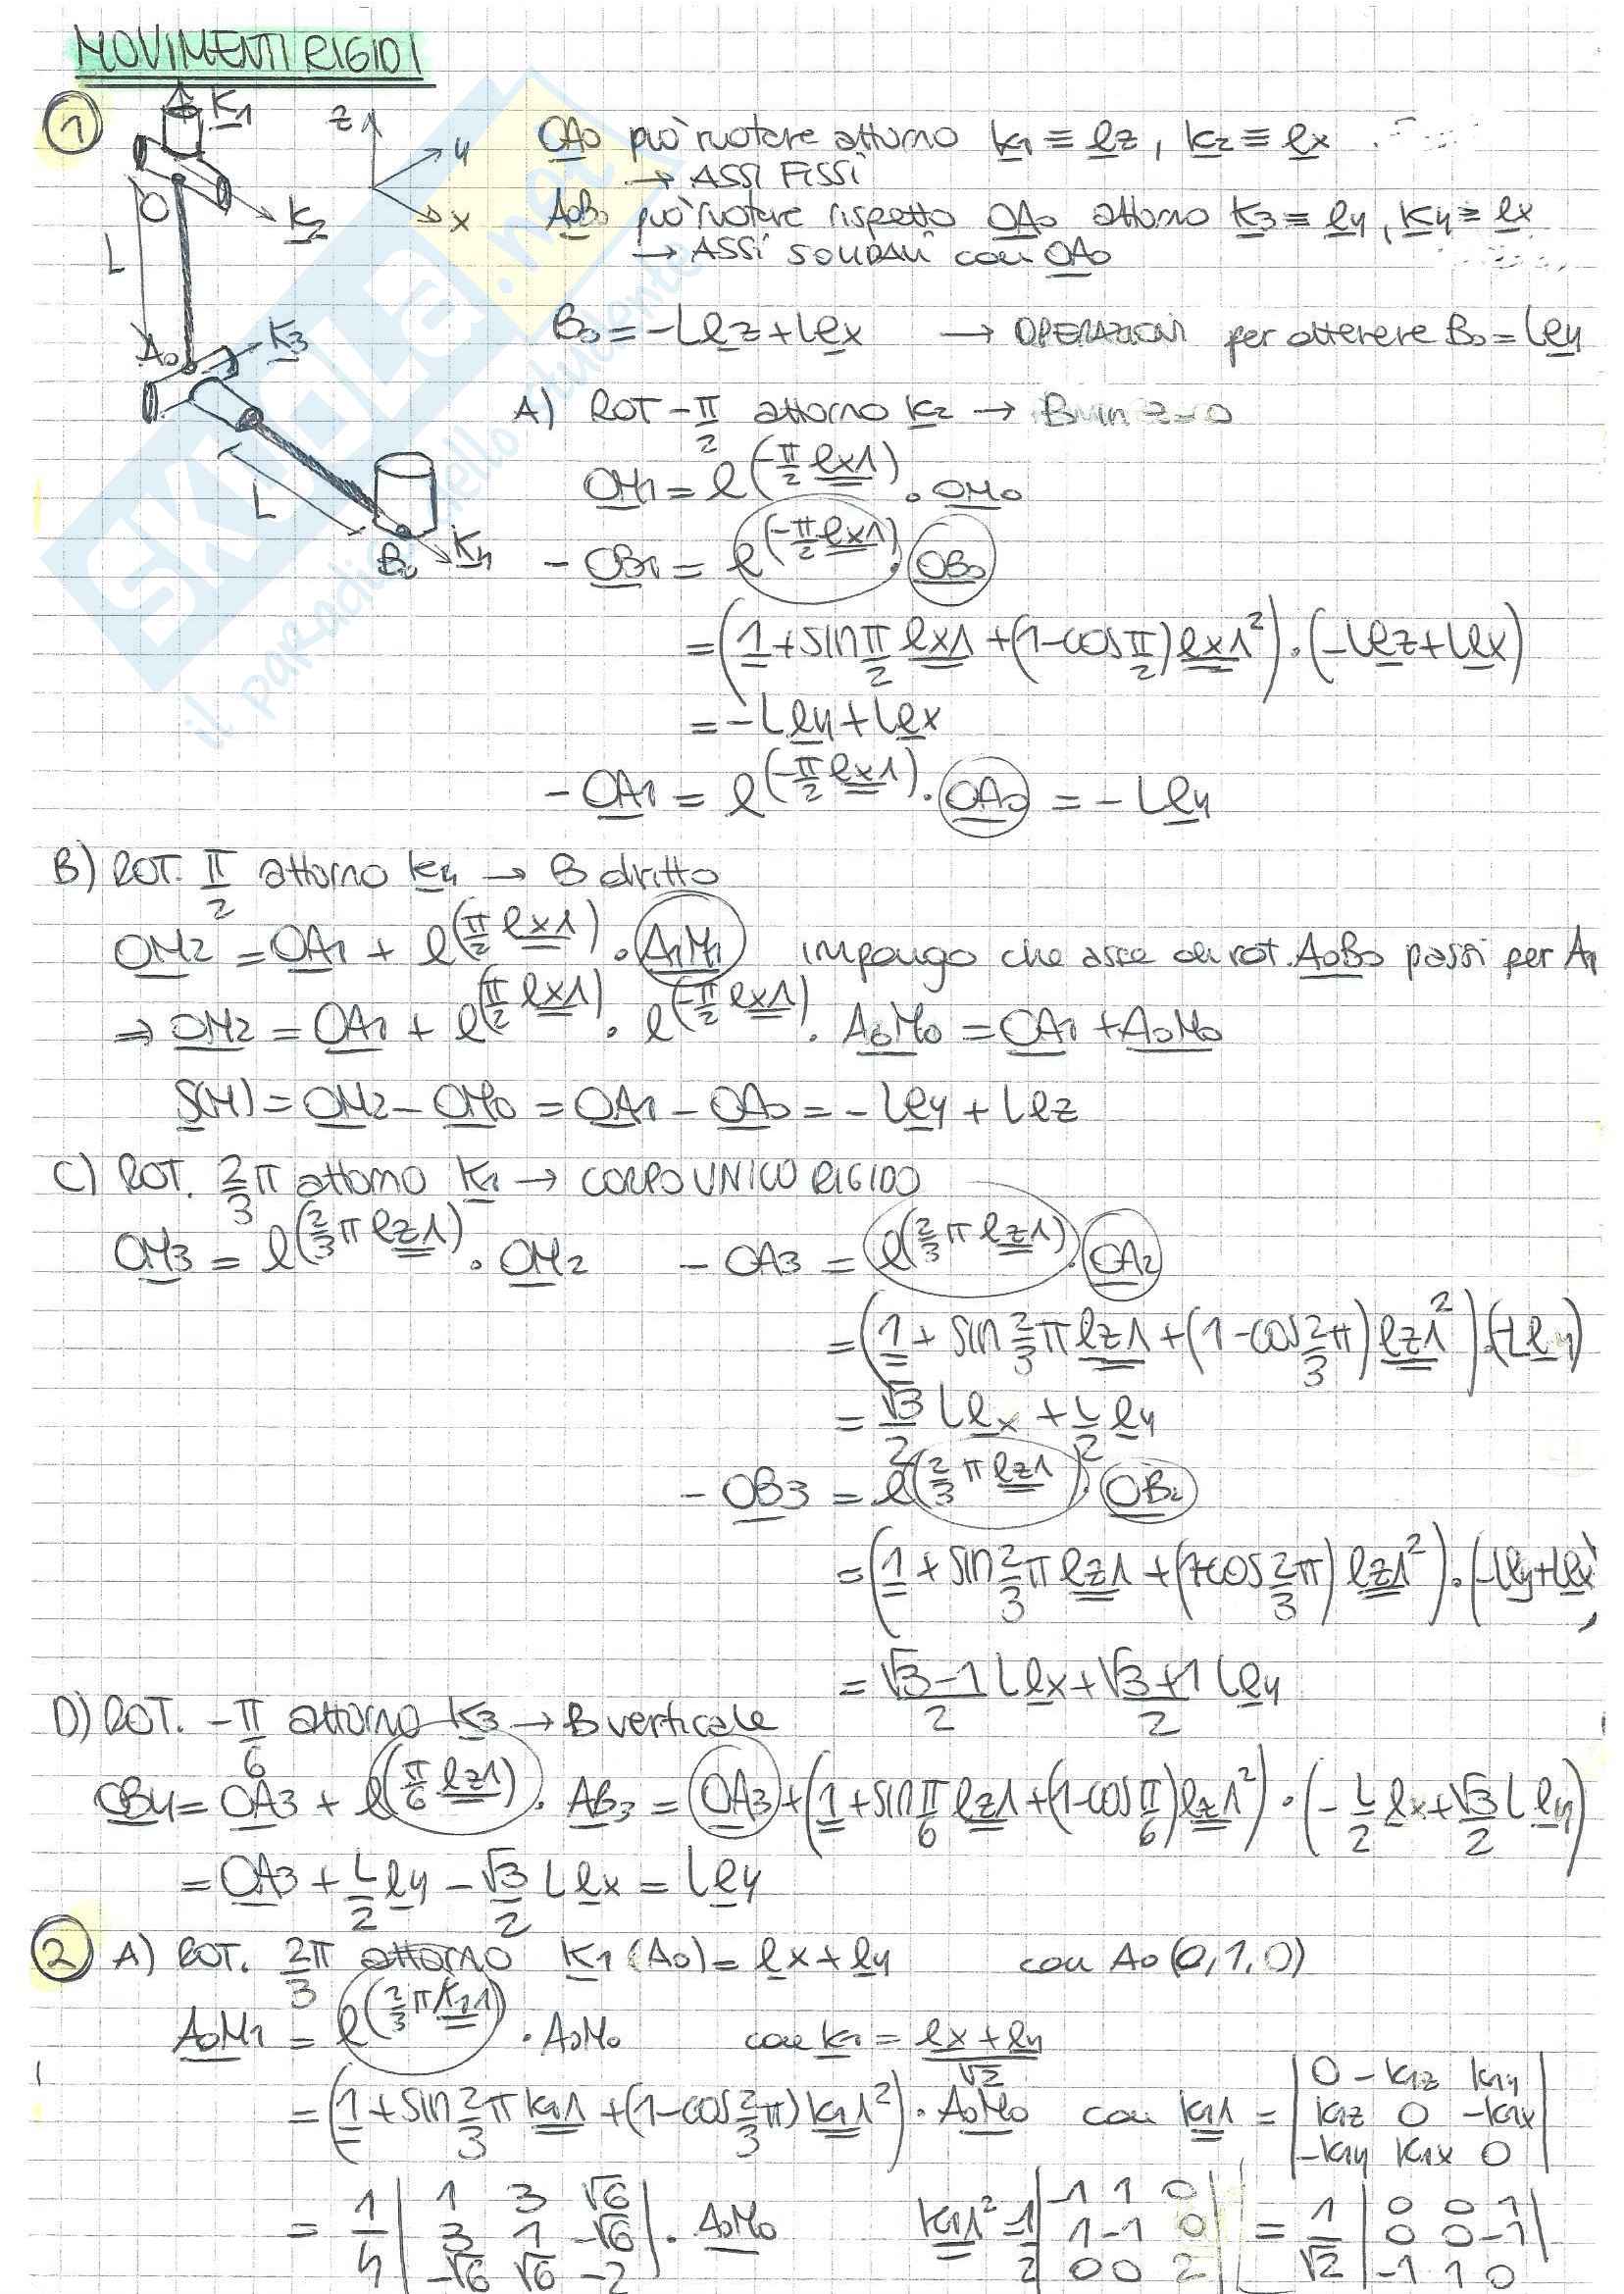 MOVIMENTI RIGIDI
1
K1
z
y
x
O
K2
L
A0
K3
L
B0
K4
OA0 può ruotare attorno k1 ≡ ez, k2 ≡ ex.
→ ASSI FISSI
A0B0 può ruotare rispetto OA0 attorno K3 ≡ ey, K4 ≡ ex
→ ASSI SOLIDALI con OA0
B0 = -Lez + Lex → OPERAZIONI per ottenere B0 = Ley
A) ROT -π/2 attorno k2 → B in z=0
OM1 = e^(-π/2 ex∧1) · OM0
- OB1 = e^(-π/2 ex∧1) · OB0
= (1 + sin π/2 ex∧1 + (1-cos π/2) ex∧1²) · (-Lez + Lex)
= -Ley + Lex
- OA1 = e^(-π/2 ex∧1) · OA0 = -Ley
B) ROT. π/2 attorno k4 → B dritto
OM2 = OA1 + e^(π/2 ex∧1) · A1M1 impongo che asse di rot. A0B0 passi per A1
⇒ OM2 = OA1 + e^(π/2 ex∧1) · e^(-π/2 ex∧1) · A0M0 = OA1 + A0M0
S(M) = OM2 - OM0 = OA1 - OA0 = -Ley + Lez
C) ROT. 2/3 π attorno K1 → CORPO UNICO RIGIDO
OM3 = e^(2/3 π ez∧1) · OM2 - OA3 = e^(2/3 π ez∧1) · OA2
= (1 + sin 2/3 π ez∧1 + (1-cos 2/3 π) ez∧1²) · (-Ley)
= √3/2 Lex + L/2 ey
- OB3 = e^(2/3 π ez∧1) · OB2
= (1 + sin 2/3 π ez∧1 + (1-cos 2/3 π) ez∧1²) · (-Ley + Lex)
= √3-1/2 Lex + √3+1/2 Ley
D) ROT. -π/6 attorno K3 → B verticale
OB4 = OA3 + e^(π/6 ez∧1) · AB3 = OA3 + (1 + sin π/6 ez∧1 + (1-cos π/6) ez∧1²) · (-L/2 ex + √3/2 Ley)
= OA3 + L/2 ey - √3/2 Lex = Ley
2 A) ROT. 2π/3 attorno K1 (A0) = ex + ey con A0 (0,1,0)
A0M1 = e^(2/3 π K1∧1) · A0M0 con k1 = ex + ey/√2
= (1 + sin 2/3 π k1∧1 + (1-cos 2/3 π) k1∧1²) · A0M0 con k1∧1 = | 0 -k1z k1y | k1z 0 -k1x | -k1y k1x 0 |
= 1/4 | 1 3 √6 | 3 1 -√6 | -√6 √6 -2 | · A0M0 k1∧1² = 1/2 | -1 1 0 | 1 -1 0 | 0 0 2 | = 1/√2 | 0 0 1 | 0 0 -1 | -1 1 0 |
SKUOLA.net
il paradiso dello studente